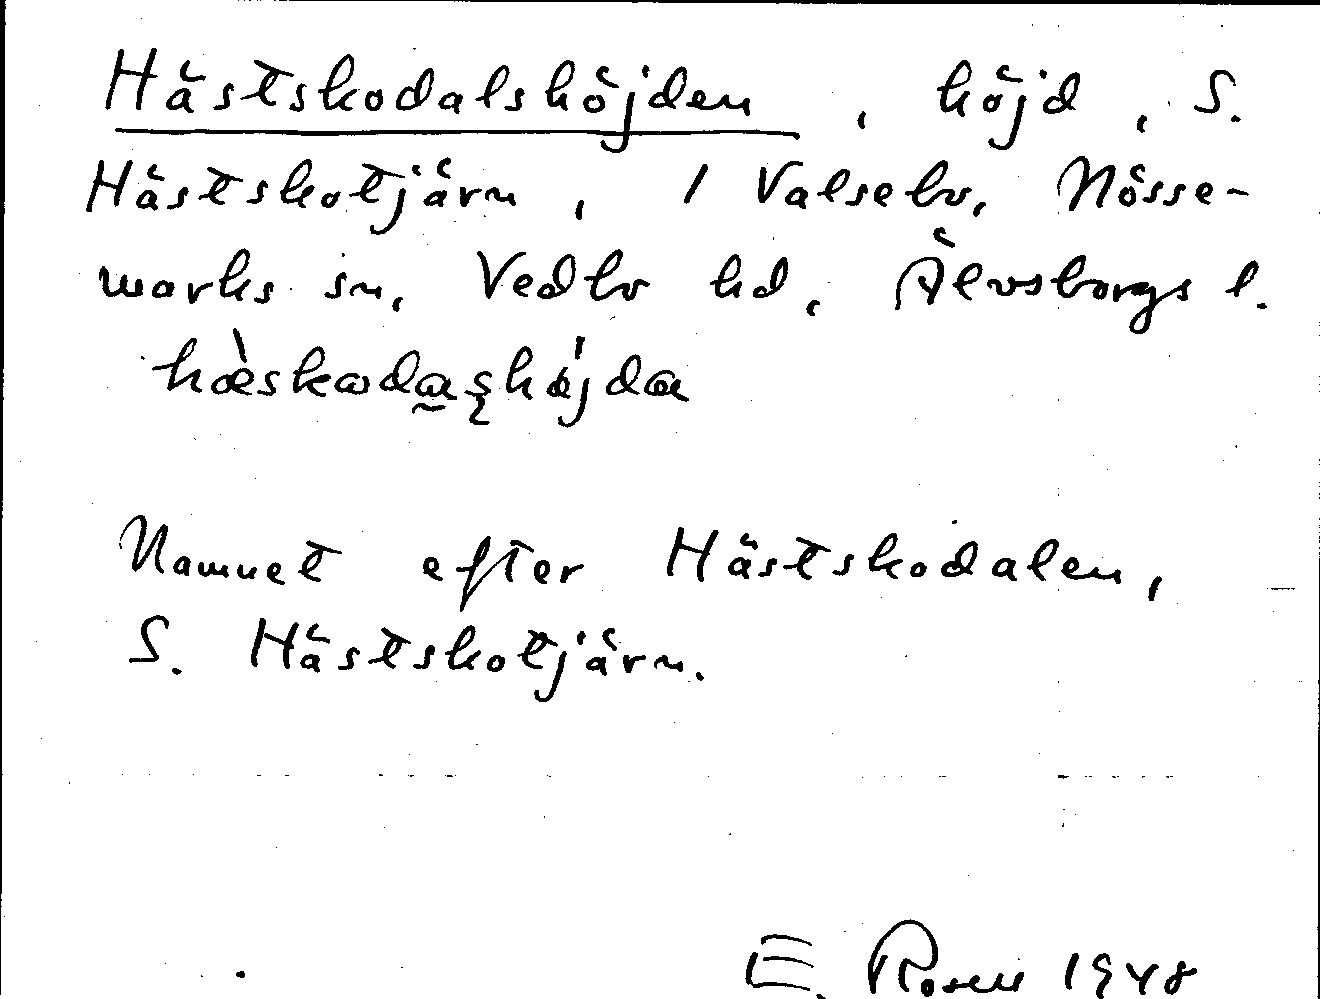 Hästskodalshöjden, höjd, S.
Hästskotjärn, 1 Valsebo, Nösse-
marks sn, Vedbo hd, Älvsborgs l.
Namnet efter Hästskodalen,
S. Hästskotjärn.
E. Rosen 1948